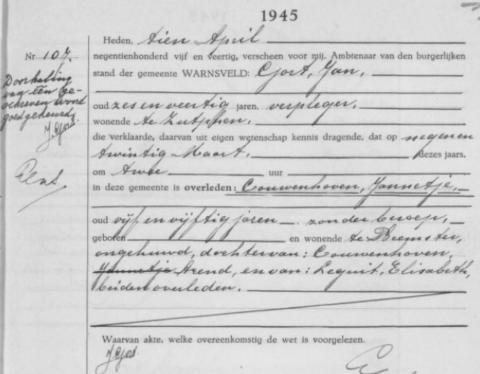 1945
Nr 107.
Doorhaling
van een ge-
schreven woord
goedgekeurd.
J. Gjort
Heden, tien April
negentienhonderd vijf en veertig, verscheen voor mij, Ambtenaar van den burgerlijken
stand der gemeente WARNSVELD: Gjort, Jan,
oud zes en veertig jaren, verpleger,
wonende te Zutphen,
die verklaarde, daarvan uit eigen wetenschap kennis dragende, dat op negenen
twintig Maart dezes jaars,
om twee uur
in deze gemeente is overleden: Couwenhoven, Jannetje,
oud vijf en vijftig jaren zonder beroep,
geboren en wonende te Beemster,
ongehuwd, dochter van: Couwenhoven,
Jannetje Arend, en van: Lequit, Elisabeth,
beiden overleden.
Waarvan akte, welke overeenkomstig de wet is voorgelezen.
J Gjort